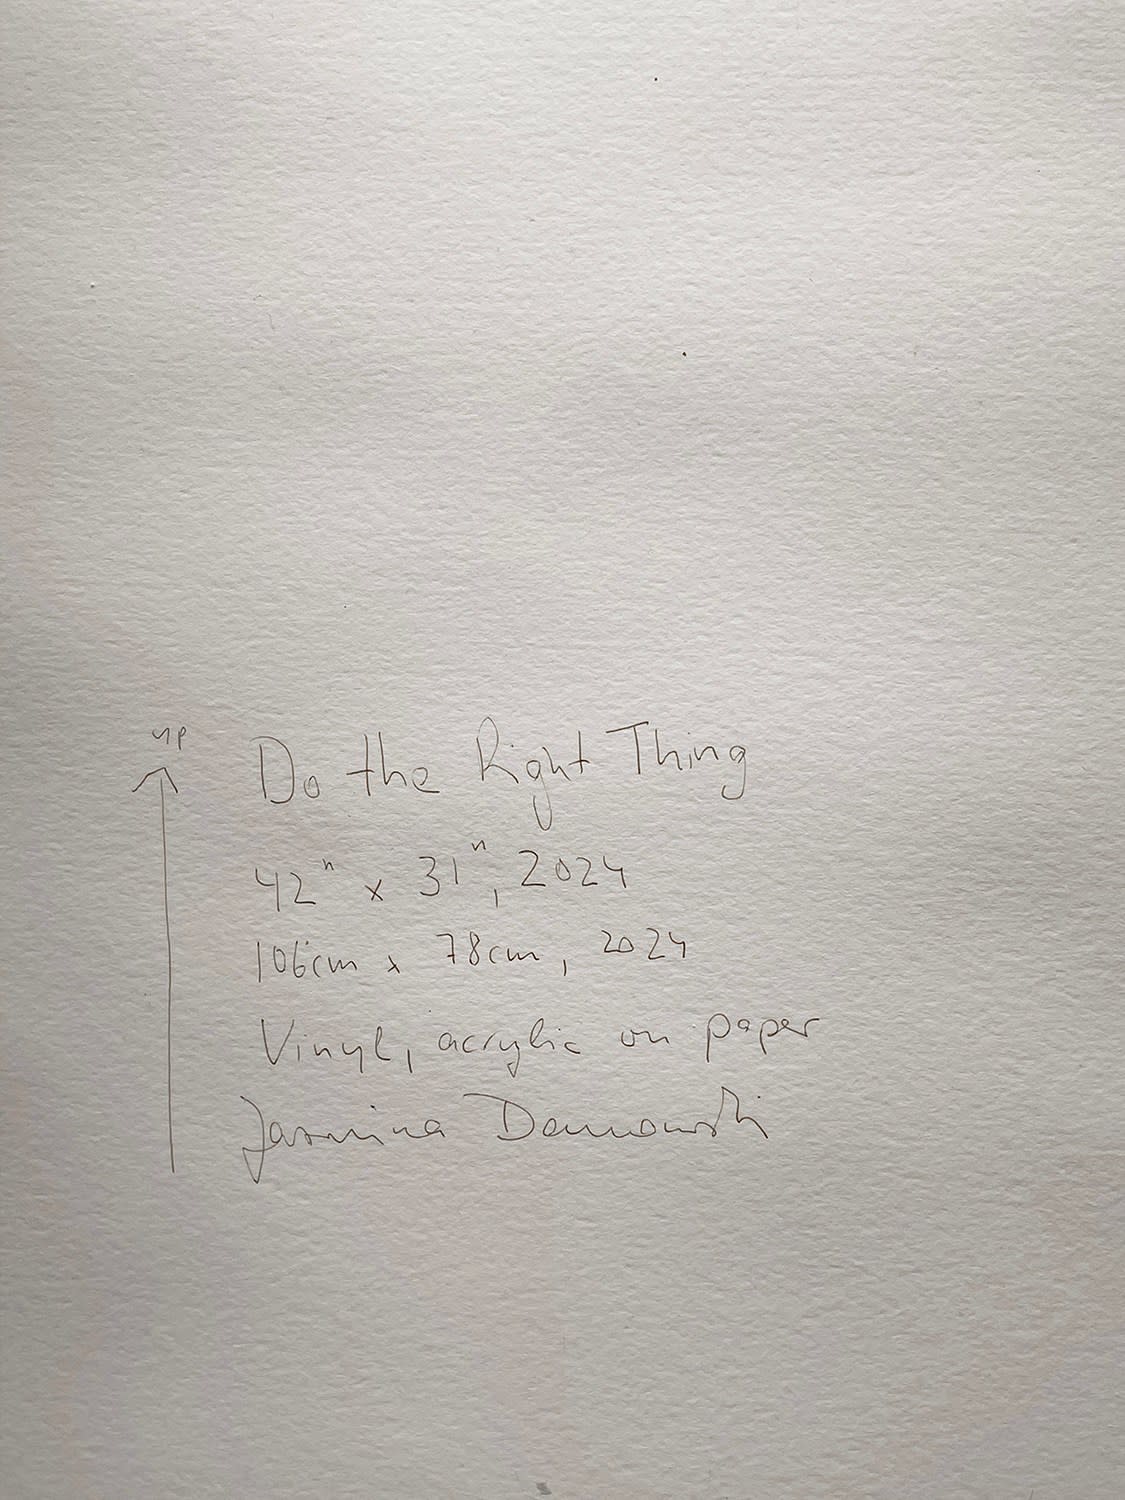 up
Do the Right Thing
42" x 31", 2024
106cm x 78cm, 2024
Vinyl, acrylic on paper
Jasmina Danowski